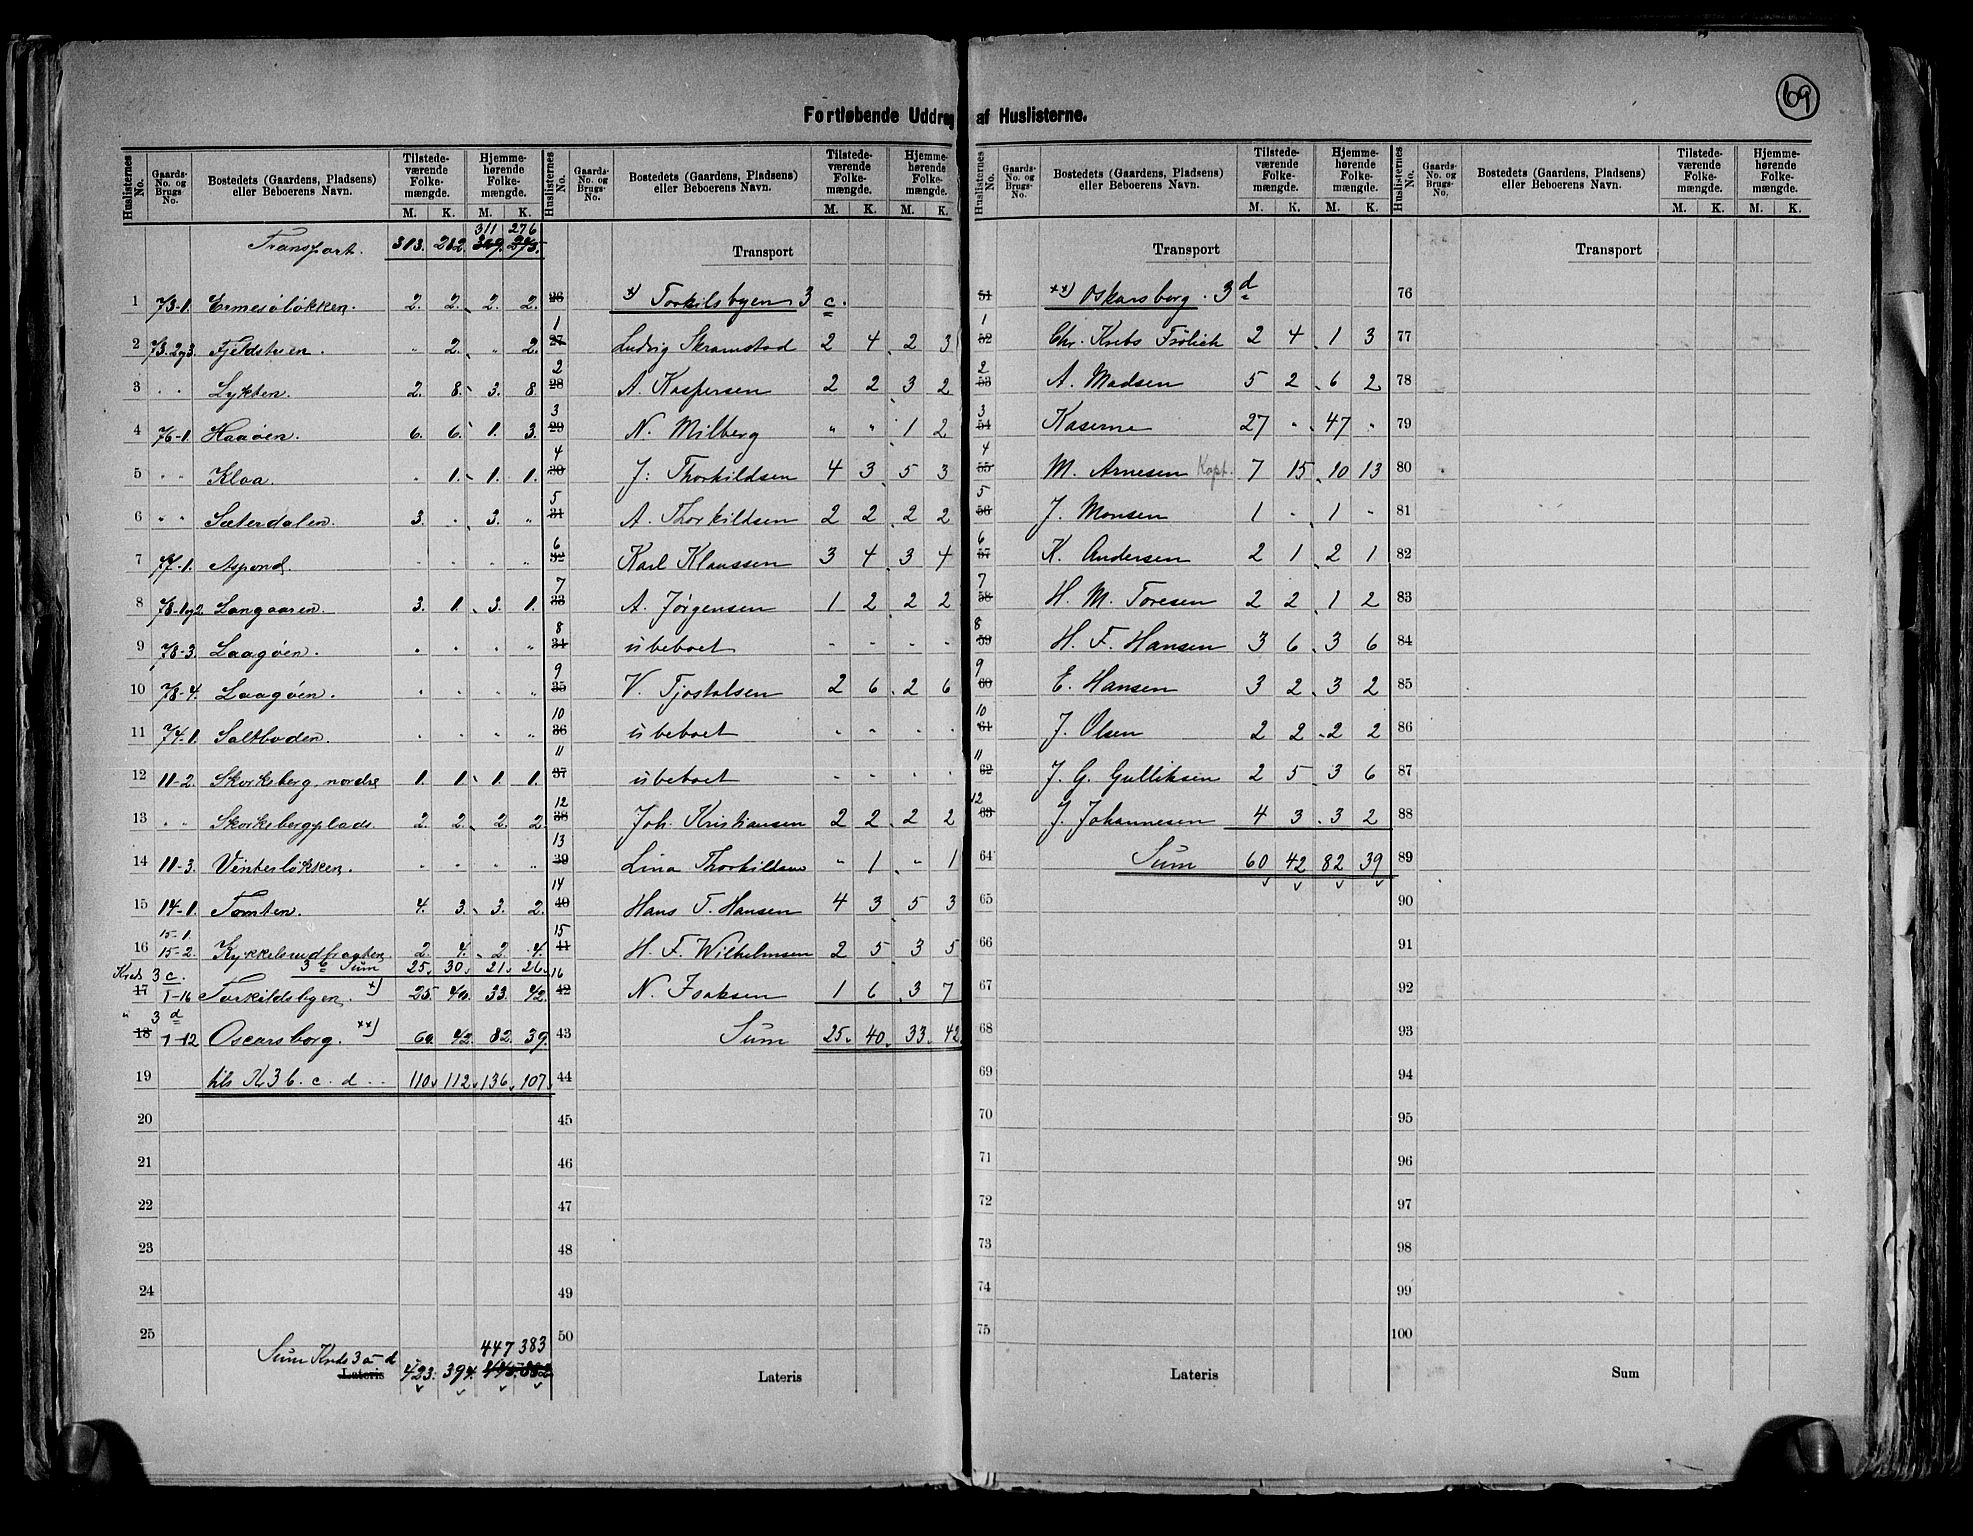 69
Fortløbende Uddrag af Huslisterne.
Huslisternes No. | Gaards-No. og Brugs-No. | Bostedets (Gaardens, Pladsens) eller Beboerens Navn. | Tilstedeværende Folkemængde. M. K. | Hjemmehørende Folkemængde. M. K.
311 276
Transport. 313. 282. 309. 275.
1 73-1. Ermesøløkken. 2. 2. 2. 2.
2 73-2og3. Fjeldstuen. " 2. " 2.
3 " " Lykken. 2. 8. 3. 8
4 76-1. Haaøen. 6. 6. 1. 3.
5 " " Kloa. " 1. 1. 1.
6 " " Sæterdalen. 3. " 3. "
7 77-1. Aspond. " " " "
8 78-1og2 Langaaren. 3. 1. 3. 1.
9 78-3. Laagøen. " " " "
10 78-4. Laagøen. " " " "
11 74-1. Saltboden. " " " "
12 11-2. Skorksberg, nordre 1. 1. 1. 1.
13 " " Skorksbergplads 2. 2. 2. 2
14 11-3. Vinterløkken. " " " "
15 14-1. Tomten. 4. 3. 3. 2.
16 15-1. 15-2. 2. 4. 2. 4.
3b Sum 25. 30. 21. 26.
Kreds 3 c.
17 1-16 Torkildsbyen. x) 25. 40. 33. 42.
" 3 d
18 1-12 Oscarsborg. xx) 60. 42. 82. 39.
19 tils K 3 b. c. d. 110. 112. 136. 107.
20
21
22
23
24
25
447 383
Sum Kreds 3 a-d
Lateris 423. 394. 445. 382.
Huslisternes No. | Gaards-No. og Brugs-No. | Bostedets (Gaardens, Pladsens) eller Beboerens Navn. | Tilstedeværende Folkemængde. M. K. | Hjemmehørende Folkemængde. M. K.
Transport
26 x) Torkilsbyen 3 c.
1 27 Ludvig Skramstad 2 4 2 3
2 28 A. Kaspersen 2 2 3 2
3 29 N. Milberg " " 1 2
4 30 J. Thorkildsen 4 3 5 3
5 31 A. Thorkildsen 2 2 2 2
6 32 Karl Klaussen 3 4 3 4
7 33 A. Jørgensen 1 2 2 2
8 34 ubeboet - - - -
9 35 V. Tjostolsen 2 6 2 6
10 36 ubeboet " " " "
11 37 ubeboet - - - -
12 38 Joh. Kristiansen 2 2 2 2
13 39 Lina Thorkildsen " 1 " 1
14 40 Hans T. Hansen 4 3 5 3
15 41 H. F. Wilhelmsen 2 5 3 5
16 42 N. Isaksen 1 6 3 7
43 Sum 25. 40. 33. 42
44
45
46
47
48
49
50
Lateris
Huslisternes No. | Gaards-No. og Brugs-No. | Bostedets (Gaardens, Pladsens) eller Beboerens Navn. | Tilstedeværende Folkemængde. M. K. | Hjemmehørende Folkemængde. M. K.
Transport
51 xx) Oskarsborg. 3 d
1 52 Chr. Krebs Frölich 2 4 1 3
2 53 A. Madsen 5 2 6 2
3 54 Kaserne 27 " 47 "
4 55 M. Arnesen Kapt. 7 15 10 13
5 56 J. Monsen 1 - 1 -
6 57 K. Andersen 2 1 2 1
7 58 H. M. Toresen 2 2 1 2
8 59 H. F. Hansen 3 6 3 6
9 60 E. Hansen 3 2 3 2
10 61 J. Olsen 2 2 2 2
11 62 J. G. Gulliksen 2 5 3 6
12 63 J. Johannesen 4 3 3 2
64 Sum 60 42 82 39
65
66
67
68
69
70
71
72
73
74
75
Lateris
Huslisternes No. | Gaards-No. og Brugs-No. | Bostedets (Gaardens, Pladsens) eller Beboerens Navn. | Tilstedeværende Folkemængde. M. K. | Hjemmehørende Folkemængde. M. K.
Transport
76
77
78
79
80
81
82
83
84
85
86
87
88
89
90
91
92
93
94
95
96
97
98
99
100
Sum